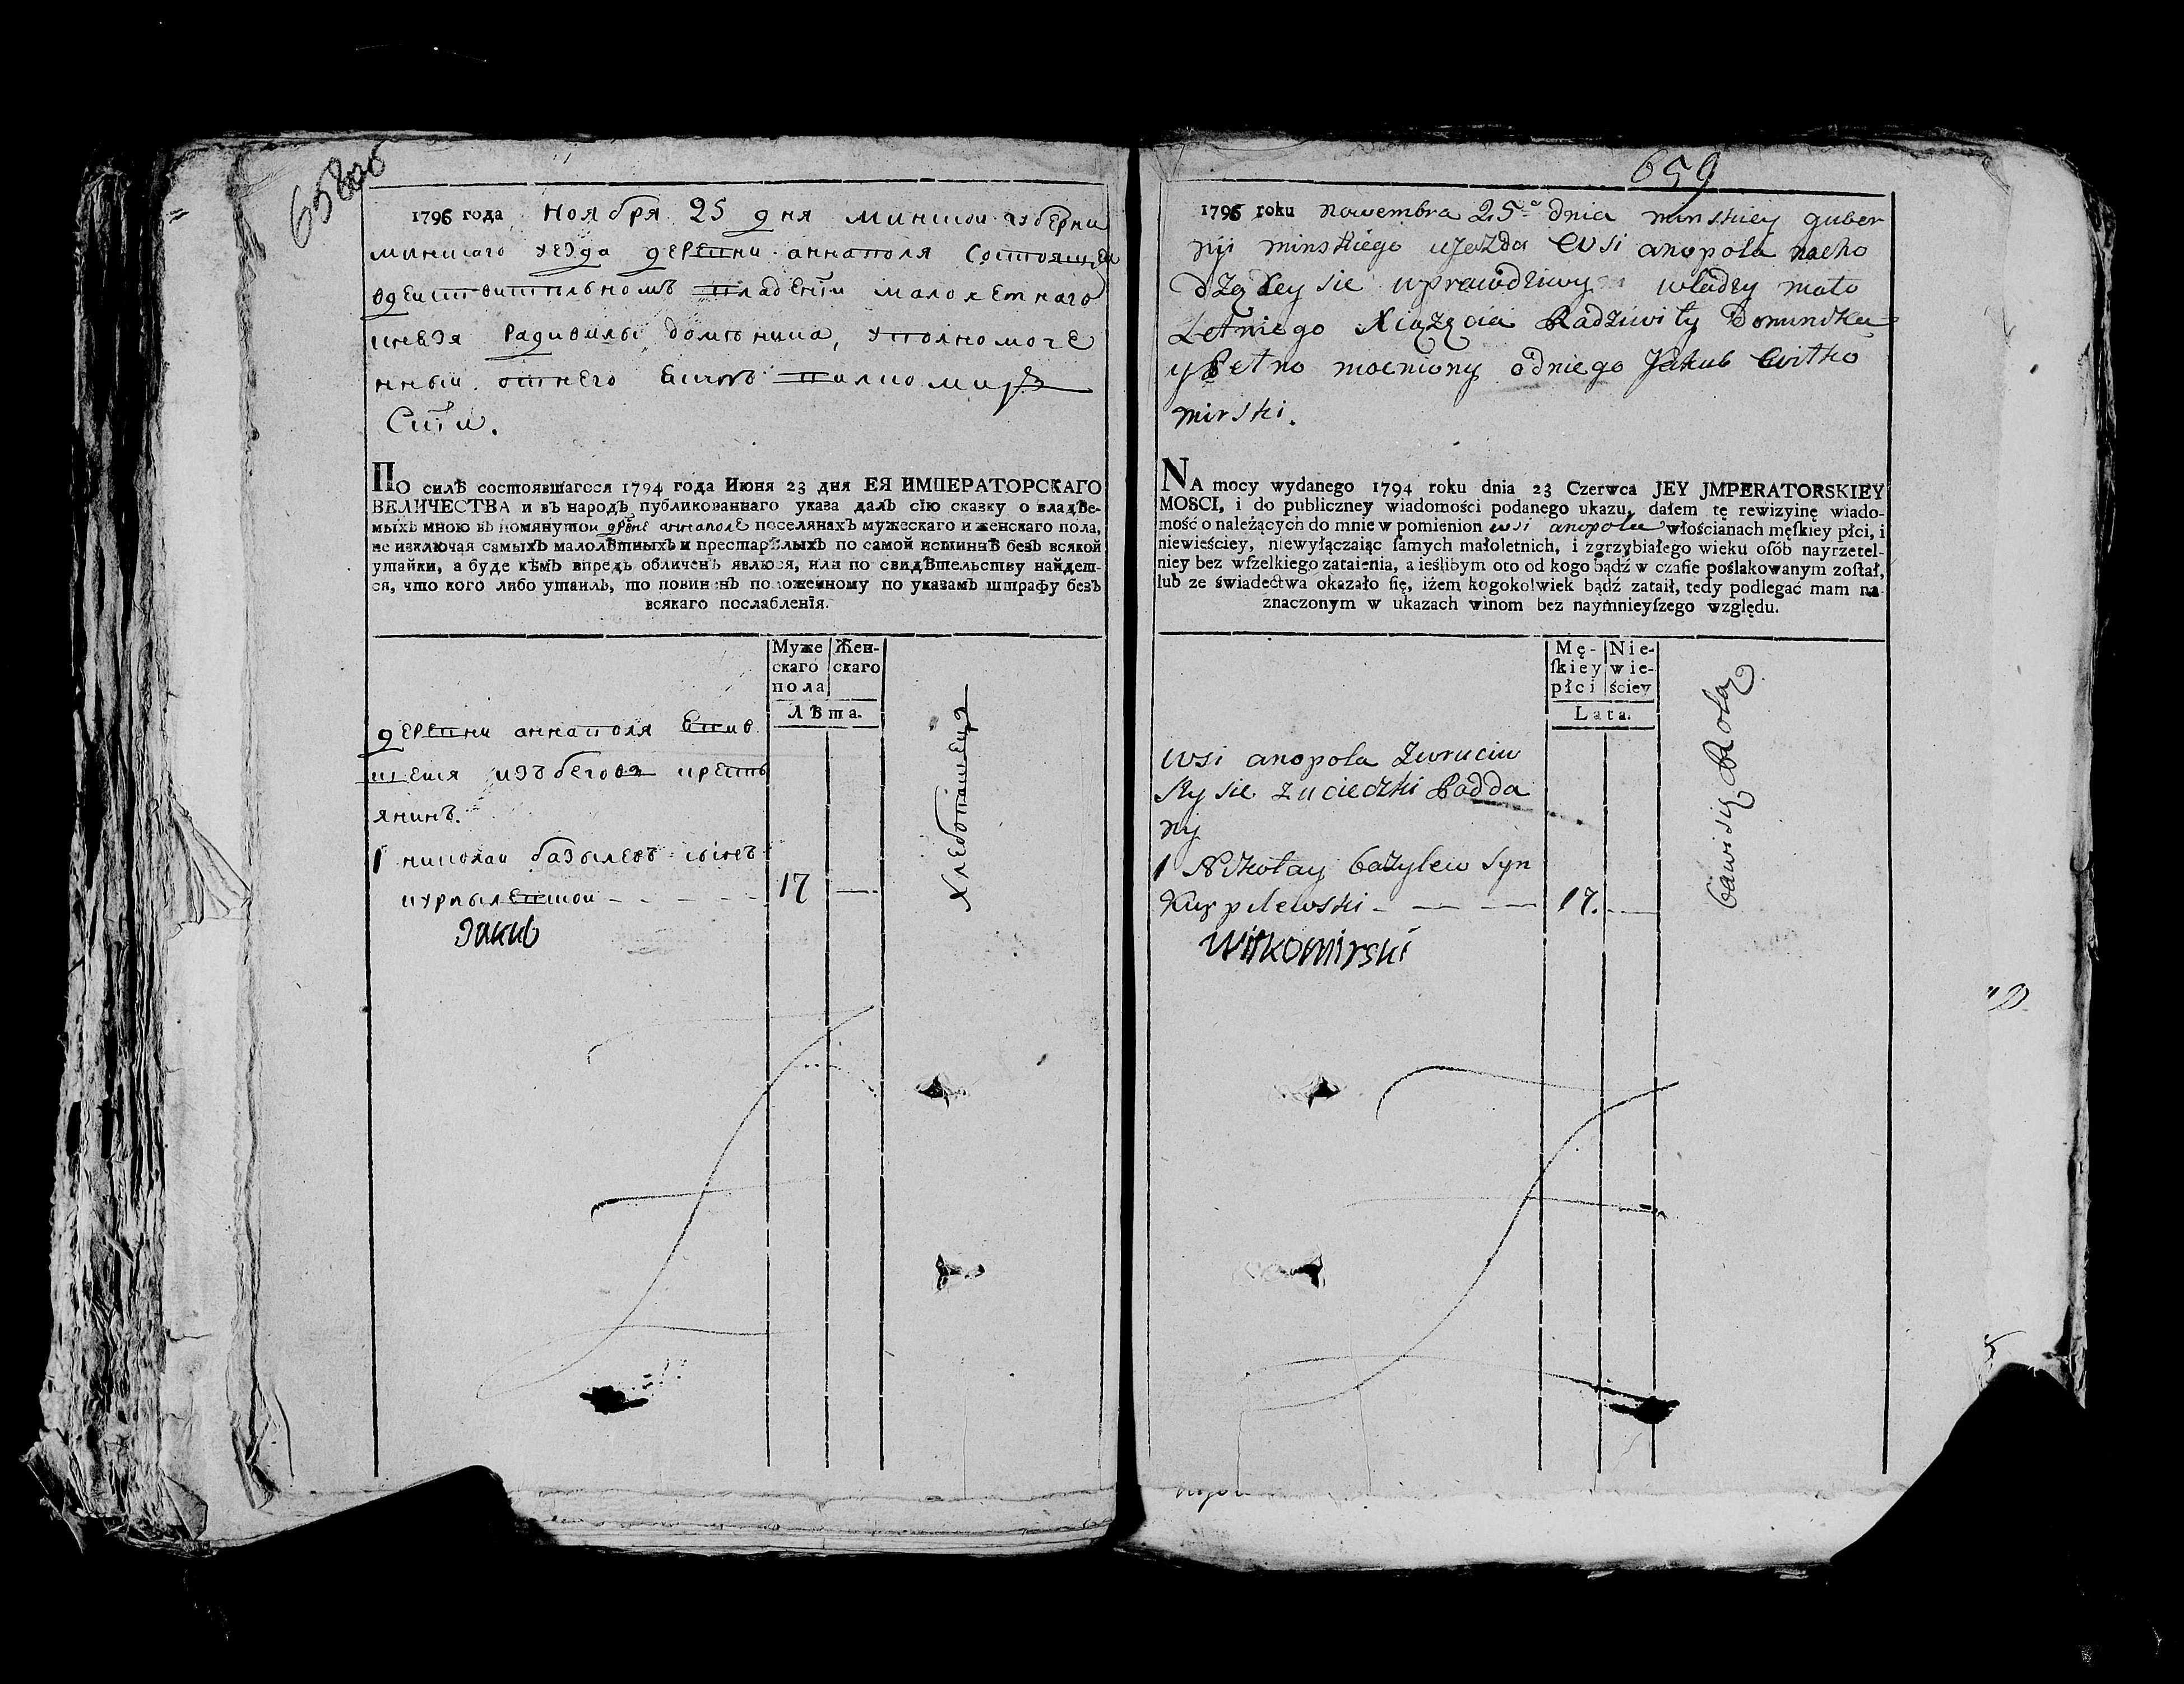 658об
1796 года ноября 25 дня минской губерни
минскаго уезда деревни аннаполя Состоящей
вдействительномъ владении малолетнаго
князя Радивилы доминика, уполномоче
нный отнего
Ски.
По силѣ состоявшагося 1794 года Июня 23 дня ЕЯ ИМПЕРАТОРСКАГО
ВЕЛИЧЕСТВА и въ народъ публикованнаго указа далъ сію сказку о владѣе-
мыхъ мною въ помянутой дрвне аннаполе поселянахъ мужескаго и женскаго пола,
не изключая самыхъ малолѣтныхъ и престарѣлыхъ по самой истиннѣ безъ всякой
утайки, а буде кѣмъ впредь обличенъ явлюся, или по свидѣтельству найдет-
ся, что кого либо утаилъ, то повиненъ положенному по указамъ штрафу безъ
всякаго послабленія.
Муже
скаго
пола
Жен-
скаго
Лѣта.
деревни аннаполя
изъ бегов кресть
янинъ.
1 николай базылевъ сынъ
курпылевской - - - - - 17 —
Хлебопашец
Якуб
659
1796 roku nowembra 25º dnia minskiey guber
nji minskiego ujezda wsi anopola nacho
dzącey sie wprawdziwy władzy mało
Letniego Xiązęcia Radziwiły Dominika
y Pełno mocniony odniego Jakub Witko
mirski.
NA mocy wydanego 1794 roku dnia 23 Czerwca JEY JMPERATORSKIEY
MOSCI, i do publiczney wiadomości podanego ukazu, dałem tę rewizyinę wiado-
mość o należących do mnie w pomienion wsi anopolu włościanach męſkiey płci, i
niewieściey, niewyłączaiąc ſamych małoletnich, i zgrzybiałego wieku oſób nayrzetel-
niey bez wſzelkiego zataienia, a ieślibym oto od kogo bądź w czaſie poślakowanym zoſtał,
lub ze świadectwa okazało ſię, iżem kogokolwiek bądź zataił, tedy podlegać mam na-
znaczonym w ukazach winom bez naymnieyſzego względu.
Mę-
ſkiey
płci
Nie-
wie-
ściey
Lata.
wsi anopola Zwruciw
szy sie Zucieczki Podda
ny
1 Nikołay bazylew Syn
Kurpilewski - — — — 17. - —
bawi się Rolą
Witkomirski